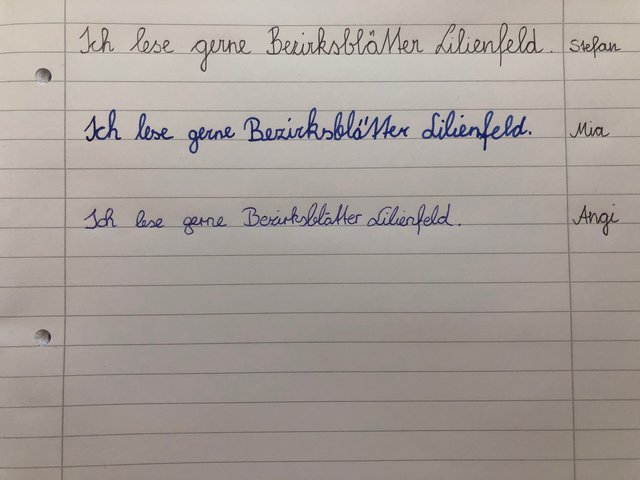 Ich lese gerne Bezirksblätter Lilienfeld. Stefan
Ich lese gerne Bezirksblätter Lilienfeld. Mia
Ich lese gerne Bezirksblätter Lilienfeld. Angi